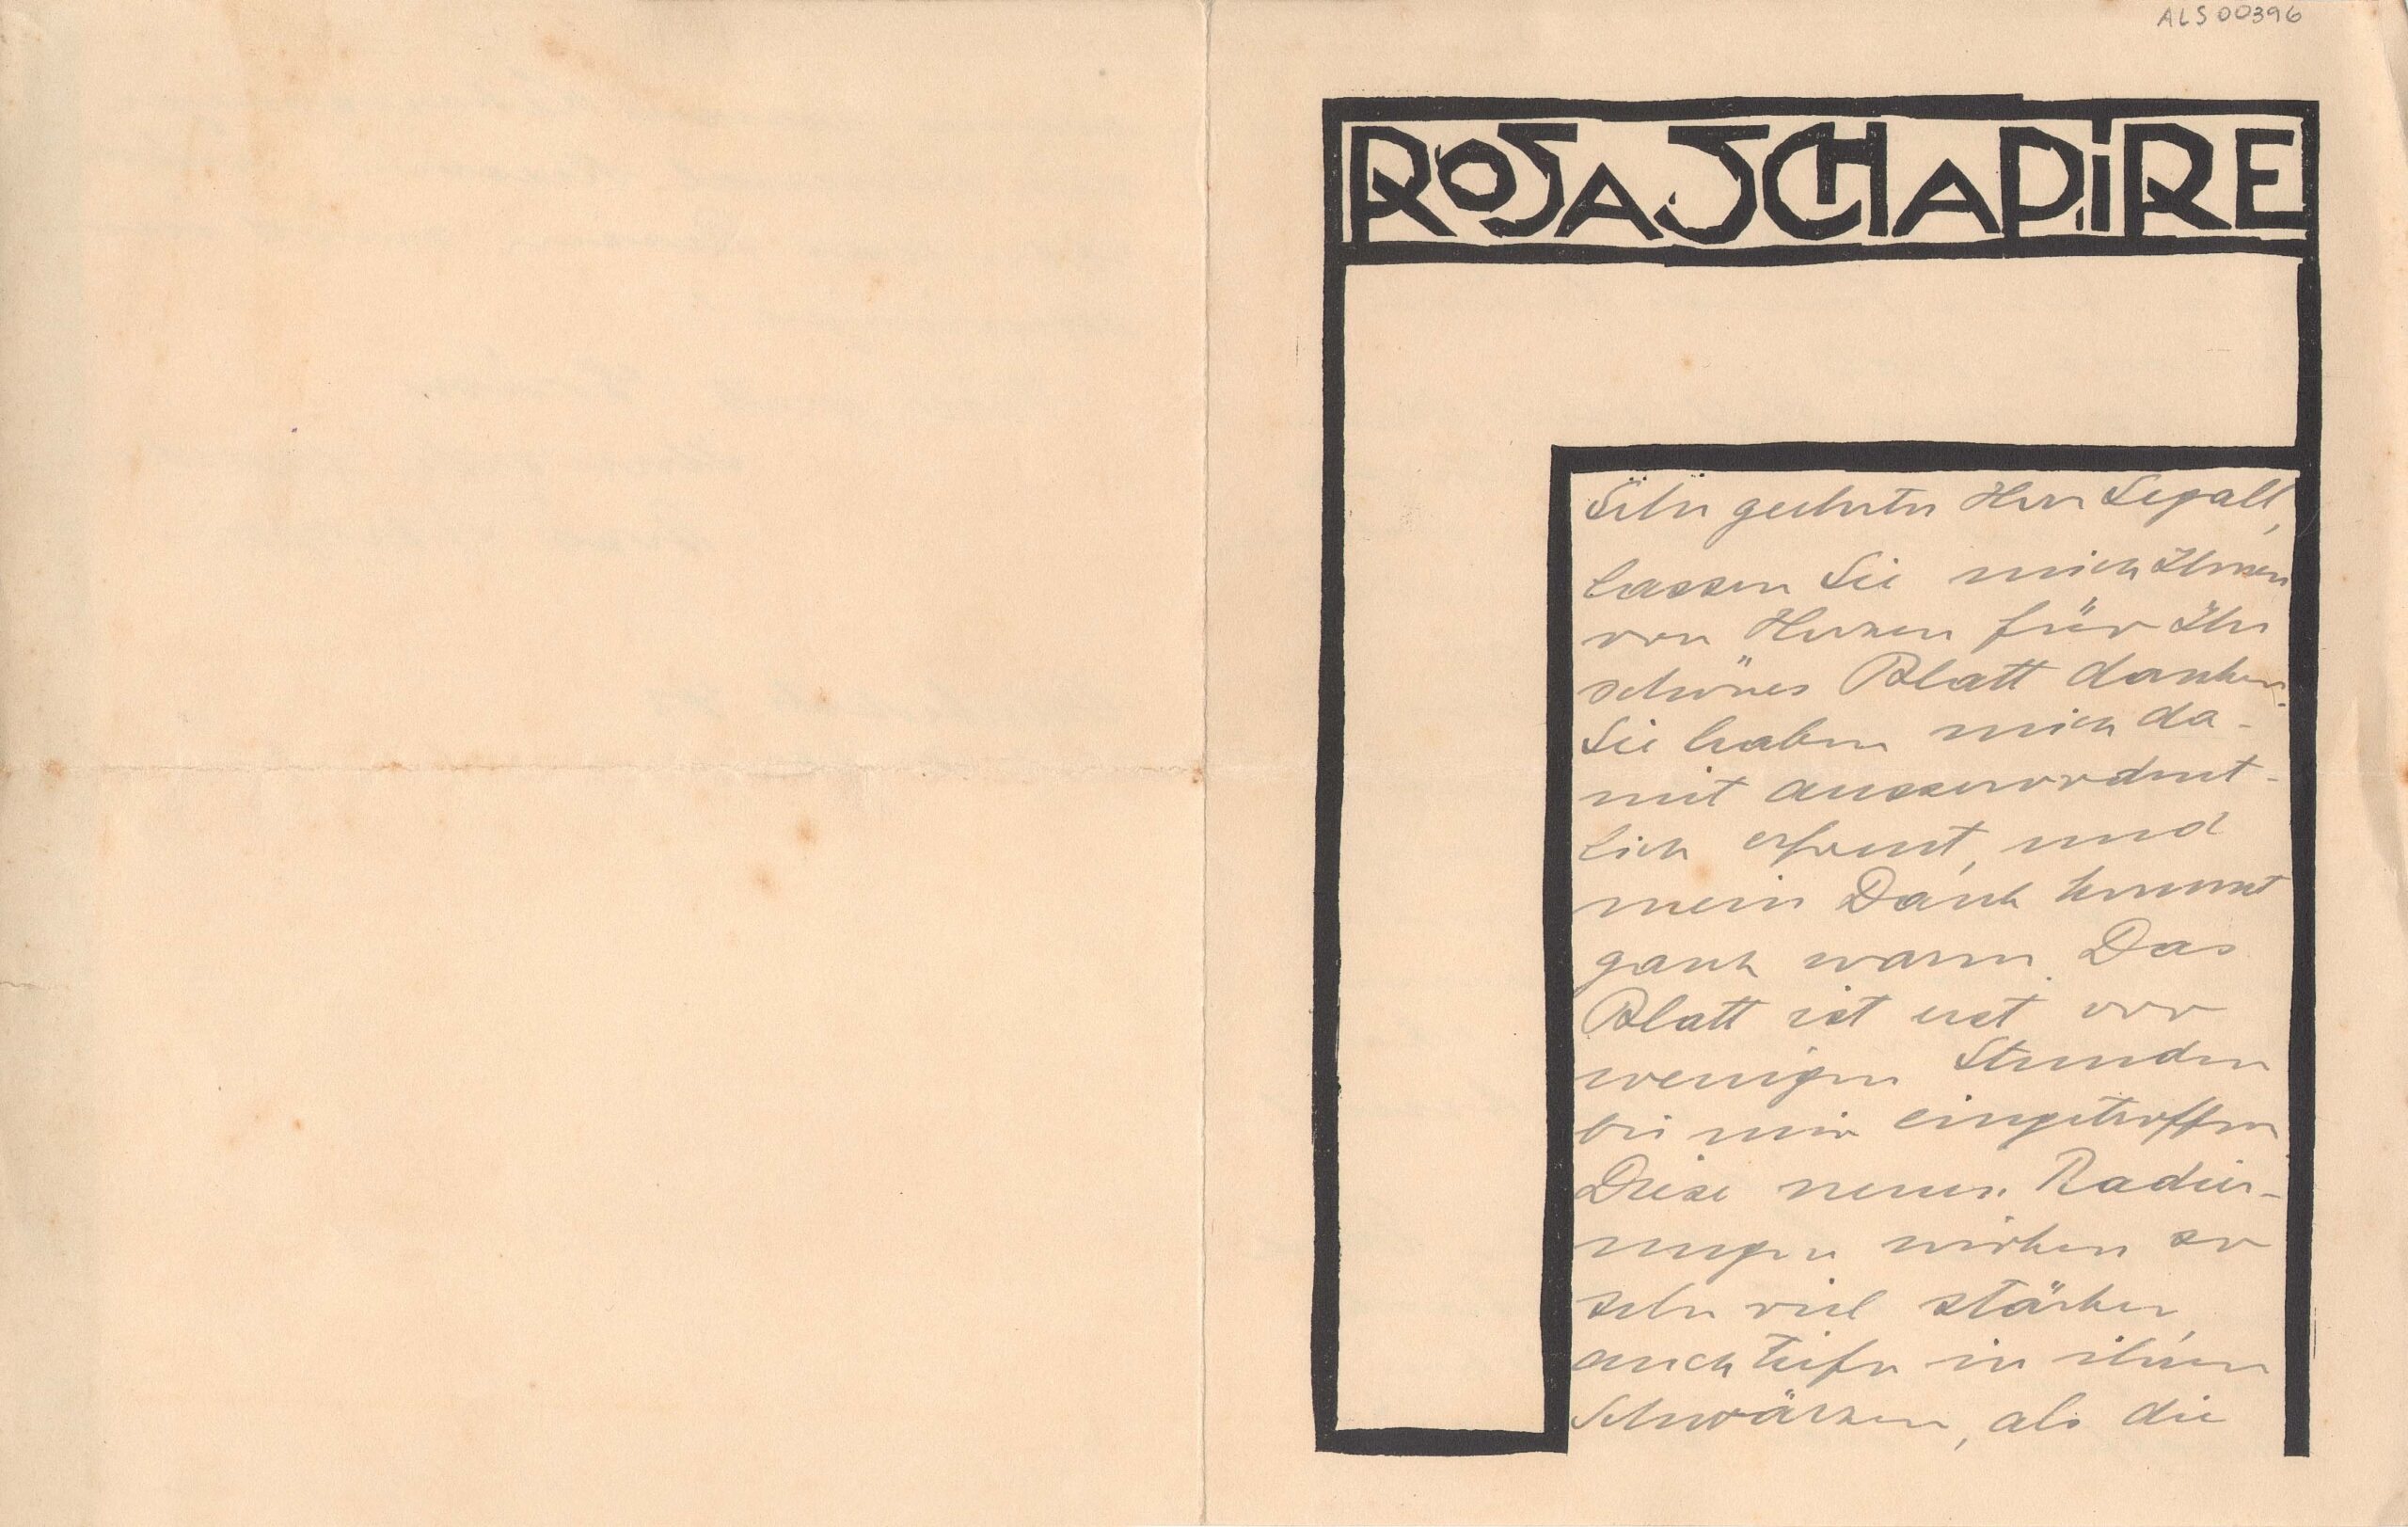 ALS 00396
ROSA SCHAPIRE
Sehr geehrter Herr Segall,
lassen Sie mich Ihnen
von Herzen für Ihr
schönes Blatt danken.
Sie haben mich da-
mit ausserordent-
lich erfreut, und
mein Dank kommt
ganz warm. Das
Blatt ist erst vor
wenigen Stunden
bei mir eingetroffen.
Diese neuen Radier-
ungen wirken so
sehr viel stärker,
auch tiefer in ihren
Schwärzen, als die